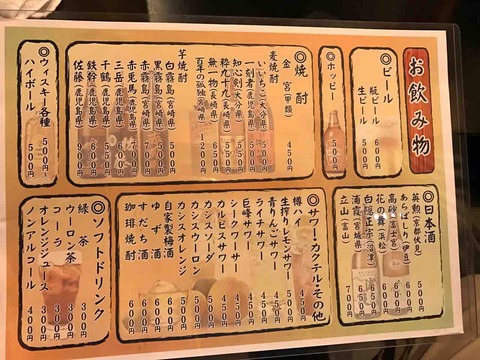 お飲み物
◎ビール
瓶ビール 500円
生ビール 500円
◎ホッピー
500円
◎焼酎
金宮(甲類) 450円
麦焼酎
いいちこ(大分県) 500円
一刻者(鹿児島県)
知心剣(大分県)
粋九十九(長崎県)
無一物(長崎県)
百年の孤独(宮崎県) 1200円
芋焼酎
白霧島(宮崎県) 500円
黒霧島(宮崎県) 500円
赤霧島(宮崎県)
赤兎馬(鹿児島県)
三岳(鹿児島県)
千鶴(鹿児島県)
鉄幹(鹿児島県) 600円
佐藤(鹿児島県) 900円
◎ウィスキー各種 500円〜
ハイボール 500円
◎日本酒
英勲(京都伏見) 500円
あらばしり(伊豆)
高砂(富士宮)
花の舞(浜松)
白隠正宗(沼津)
浦霞(宮城県) 650円
立山(富山) 700円
◎サワー・カクテル・その他
樽ハイ 450円
生搾りレモンサワー 500円
青りんごサワー 450円
ライチサワー 450円
巨峰サワー 450円
シークワーサー 450円
カルピスサワー 450円
カシスソーダ
カシスウーロン
カシスオレンジ
自家製梅酒
ゆず酒
すだち酒 600円
珈琲焼酎 600円
◎ソフトドリンク
緑茶 300円
ウーロン茶 300円
コーラ 300円
オレンジジュース 300円
ノンアルコール 400円